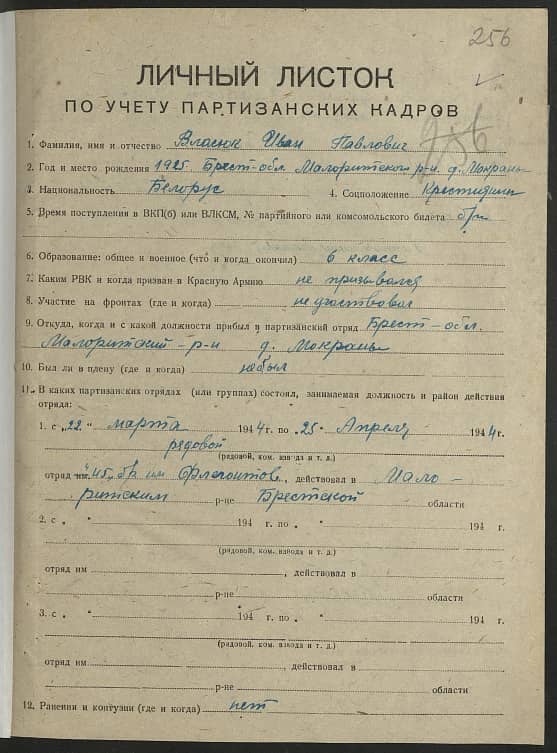 256
ЛИЧНЫЙ ЛИСТОК
ПО УЧЕТУ ПАРТИЗАНСКИХ КАДРОВ
1. Фамилия, имя и отчество Власюк Иван Павлович
2. Год и место рождения 1925. Брест-обл. Малоритского р-н. д. Мокраны
3. Национальность Белорус 4. Соцположение
5. Время поступления в ВКП(б) или ВЛКСМ, № партийного или комсомольского билета б/п
6. Образование: общее и военное (что и когда окончил) 6 класс
7. Каким РВК и когда призван в Красную Армию не призывался
8. Участие на фронтах (где и когда) не участвовал
9. Откуда, когда и с какой должности прибыл в партизанский отряд Брест-обл.
Малоритский-р-н д. Мокраны
10. Был ли в плену (где и когда) не был
11. В каких партизанских отрядах (или группах) состоял, занимаемая должность и район действия
отряда:
1. с „22" марта 1944 г. по „25" Апреля 1944 г.
рядовой
(рядовой, ком. взвода и т. д.)
отряд им. , действовал в Мало-
ритским р-не Брестской области
2. с „ " 194 г. по „ " 194 г.
(рядовой, ком. взвода и т. д.)
отряд им , действовал в
р-не области
3. с „ " 194 г. по „ " 194 г.
(рядовой, ком. взвода и т. д.)
отряд им , действовал в
р-не области
12. Ранения и контузии (где и когда) нет